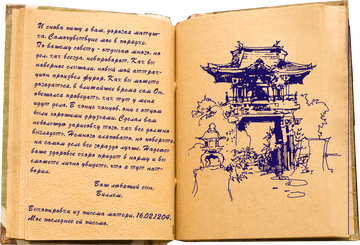 И снова пишу я вам, дорогая матуш-
ка. Самочувствие мое в порядке.
По вашему совету - отдыхаю много, но
дел, как всегда, невпроворот. Как вы
наверное слышали, новый мой аттрак-
цион произвел фурор. Как вы можете
догадаться, в ближайшее время сам Он,
обещался проведать, как тут у меня
идут дела. В конце концов, они с отцом
были хорошими друзьями. Сделал вам
небольшую зарисовку того, как все должно
выглядеть. Немного аляповато, но поверьте,
на самом деле все гораздо лучше. Надеюсь
ваше здоровье скоро придет в норму и вы
сможете лично увидеть, что я тут нат-
ворил.
Ваш любящий сын,
Виллем.
Выкопировка из письма матери, 16.02.1204.
Мое последнее ей письмо.